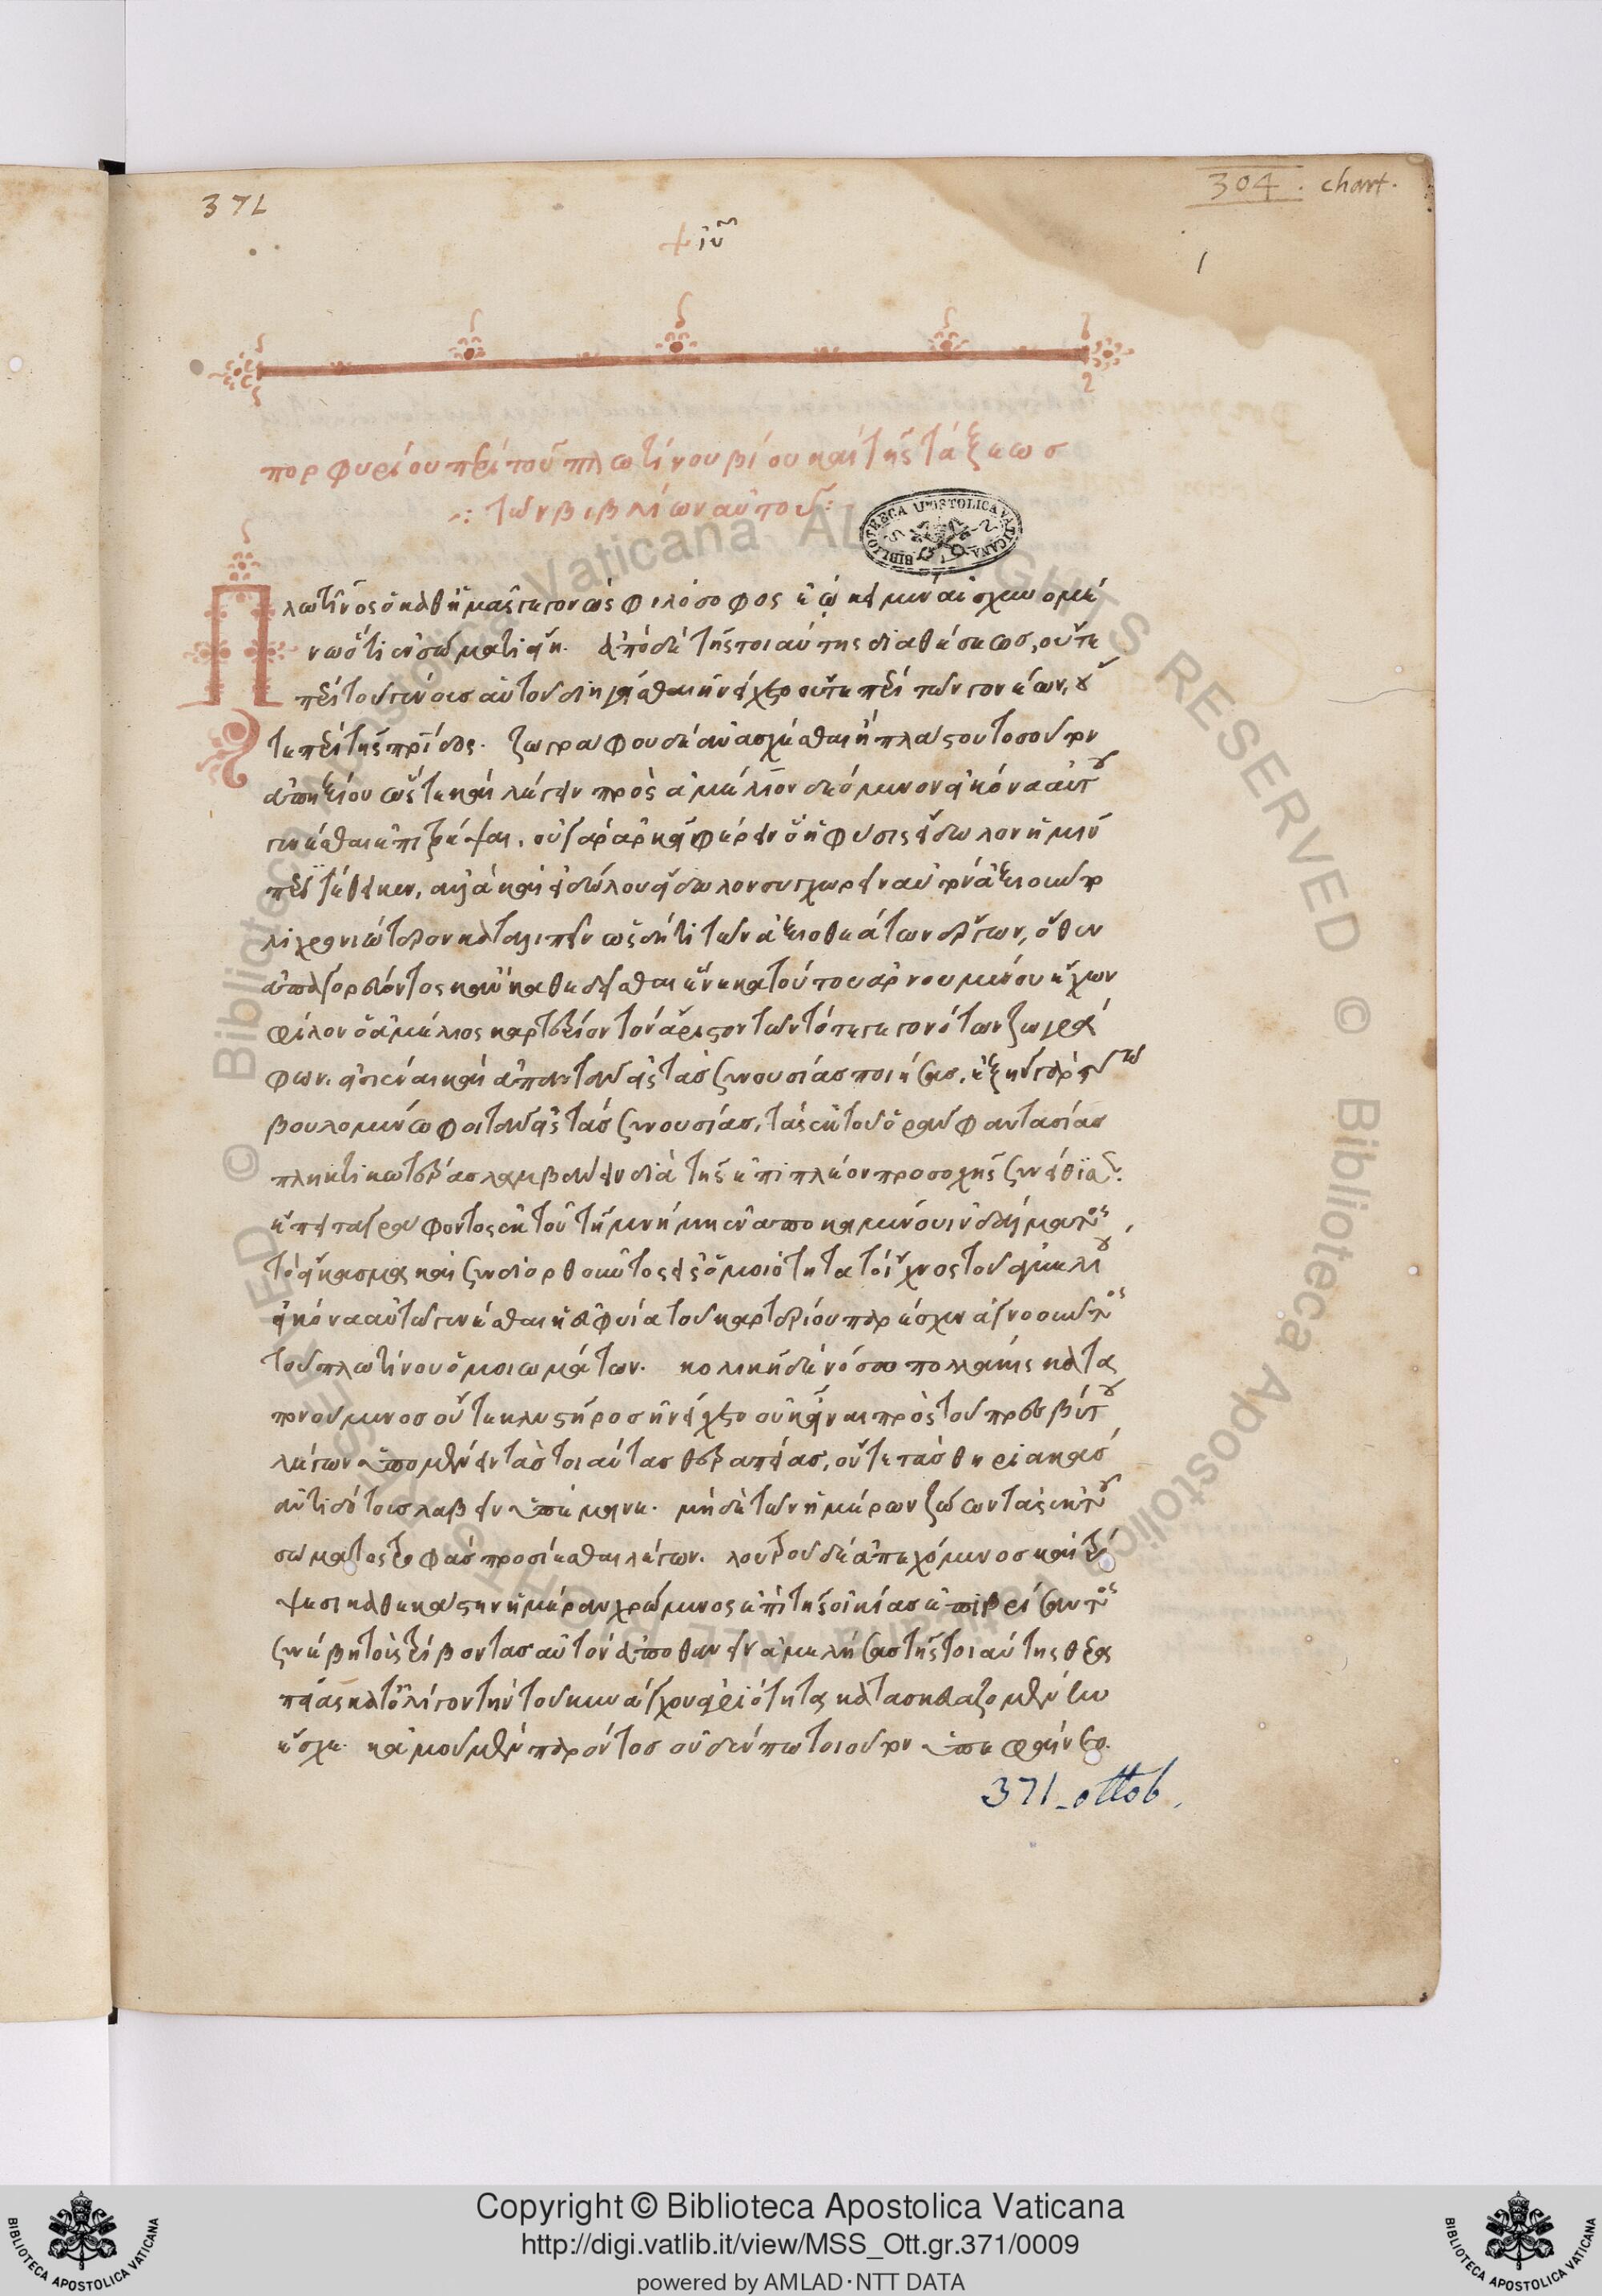 371
304 . chart.
+ ιυ
1
πορφυρίου περὶ τοῦ πλωτίνου βίου καὶ τῆς τάξεως
τῶν βιβλίων αὐτοῦ:
Πλωτῖνος ὁ καθ' ἡμᾶς γεγονὼς φιλόσοφος ἐῴκει μὲν αἰσχυνομέ
νῳ ὅτι ἐν σώματι εἴη. ἀπὸ δὲ τῆς τοιαύτης διαθέσεως, οὔτε
περὶ τοῦ γένους αὐτοῦ διηγεῖσθαι ἠνείχετο οὔτε περὶ τῶν γονέων, οὔ
τε περὶ τῆς πατρίδος. ζωγράφου δὲ ἀνασχέσθαι ἢ πλάστου τοσοῦτον
ἀπηξίου ὥστε καὶ λέγειν πρὸς ἀμέλιον δεόμενον εἰκόνα αὐτοῦ
γενέσθαι ἐπιτρέψαι. οὐ γὰρ ἀρκεῖ φέρειν ὃ ἡ φύσις εἴδωλον ἡμῖν
περιτέθεικεν, ἀλλὰ καὶ εἰδώλου εἴδωλον συγχωρεῖν αὐτὸν ἀξιοῦν πο
λυχρονιώτερον καταλιπεῖν ὡς δή τι τῶν ἀξιοθεάτων ἔργων, ὅθεν
ἀπαγορεύοντος καὶ καθεδεῖσθαι ἕνεκα τούτου ἀρνουμένου ἔχων
φίλον ὁ ἀμέλιος καρτέριον τὸν ἄριστον τῶν τότε γεγονότων ζωγρά
φων. εἰσιέναι καὶ ἀπαντᾶν εἰς τὰς συνουσίας ποιήσας, ἐξῆν γὰρ τῷ
βουλομένῳ φοιτᾶν εἰς τὰς συνουσίας, τὰς ἐκ τοῦ ὁρᾶν φαντασίας
πληκτικωτέρας λαμβάνειν διὰ τῆς ἐπὶ πλέον προσοχῆς συνείθισε.
ἔπειτα γράφοντος ἐκ τοῦ τῇ μνήμῃ ἐναποκειμένου ἰνδάλματος
τὸ εἴκασμα καὶ συνδιορθοῦντος εἰς ὁμοιότητα τὸ ἴχνος τοῦ ἀμελίου
εἰκόνα αὐτοῦ γενέσθαι ἡ εὐφυία τοῦ καρτερίου παρέσχεν ἀγνοοῦντος
τοῦ πλωτίνου ὁμοιωμάτων. κοιλιακῇ δὲ νόσῳ πολλάκις κατα
πονούμενος οὔτε κλυστῆρος ἠνείχετο οὐκ εἶναι πρὸς τοῦ πρεσβύτου
λέγων ὑπομένειν τὰς τοιαύτας θεραπείας, οὔτε τὰς θηριακὰς
ἀντιδότους λαβεῖν ὑπέμεινε. μηδὲ τῶν ἡμέρων ζῴων τὰς ἐκ τοῦ
σώματος τροφὰς προσίεσθαι λέγων. λουτροῦ δὲ ἀπεχόμενος καὶ τρί
ψεσι καθ' ἑκάστην ἡμέραν χρώμενος ἐπὶ τῆς οἰκίας ἐπιβρίσαντος
συνέβη τοὺς τρίβοντας αὐτὸν ἀποθανεῖν ἀμελήσας τῆς τοιαύτης θερα
πείας κατ' ὀλίγον τὴν τοῦ κυνάγχου ἀγριότητα κατασκευαζομένην
ἔσχε. κἀμοῦ μὲν παρόντος οὐδέν πω τοιοῦτον ὑπεφαίνετο.
371_ottob.
BIBLIOTECA APOSTOLICA VATICANA
© Biblioteca Apostolica Vaticana ALL RIGHTS RESERVED
Copyright © Biblioteca Apostolica Vaticana
http://digi.vatlib.it/view/MSS_Ott.gr.371/0009
powered by AMLAD·NTT DATA